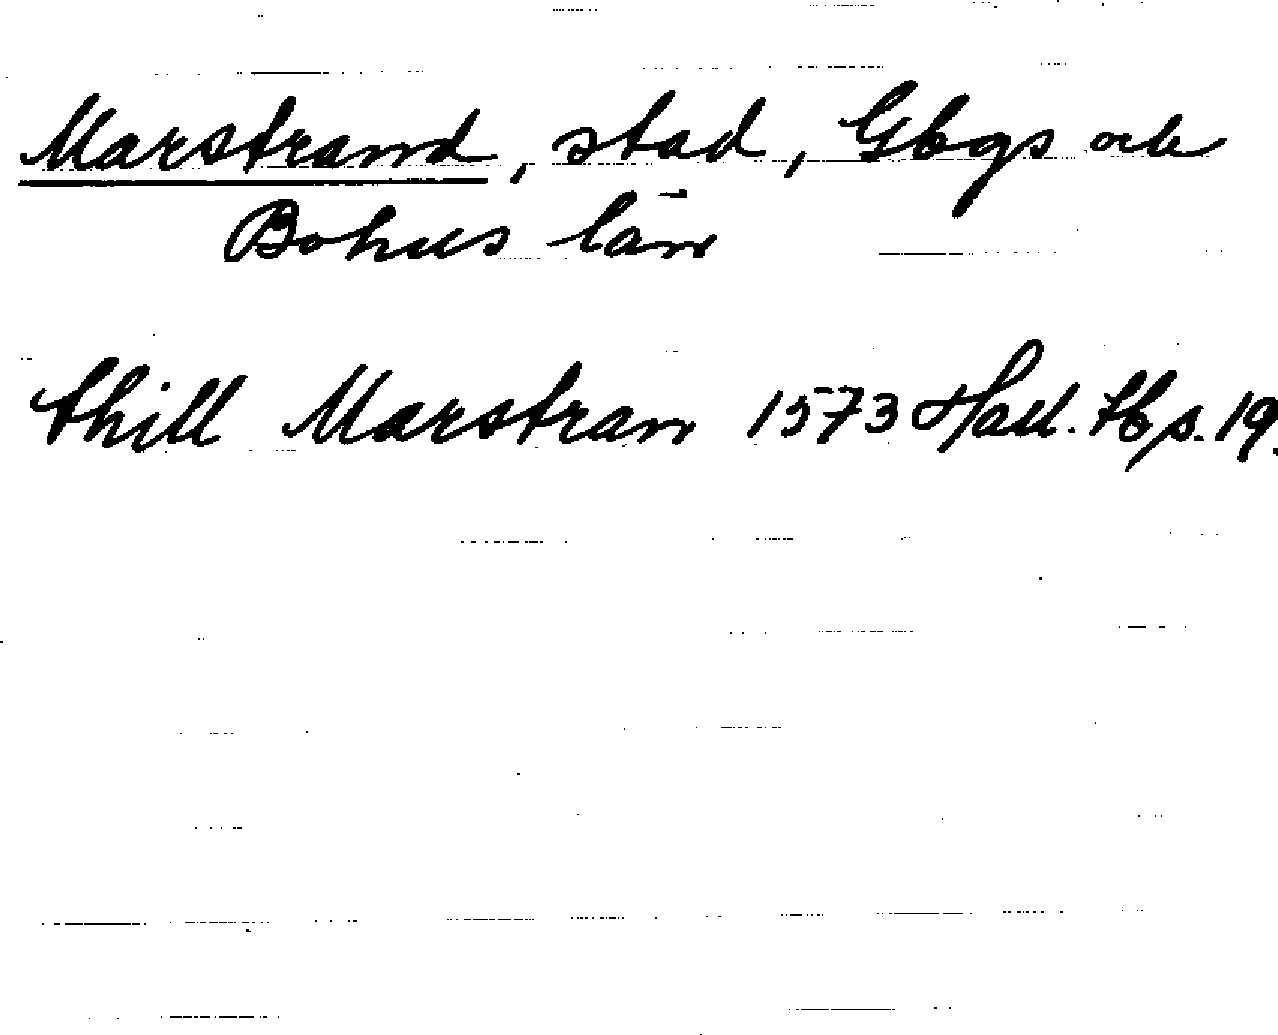 Marstrand, stad, Gbgs och
Bohus län
thill Marstran 1573 Hall. Hs. 19.